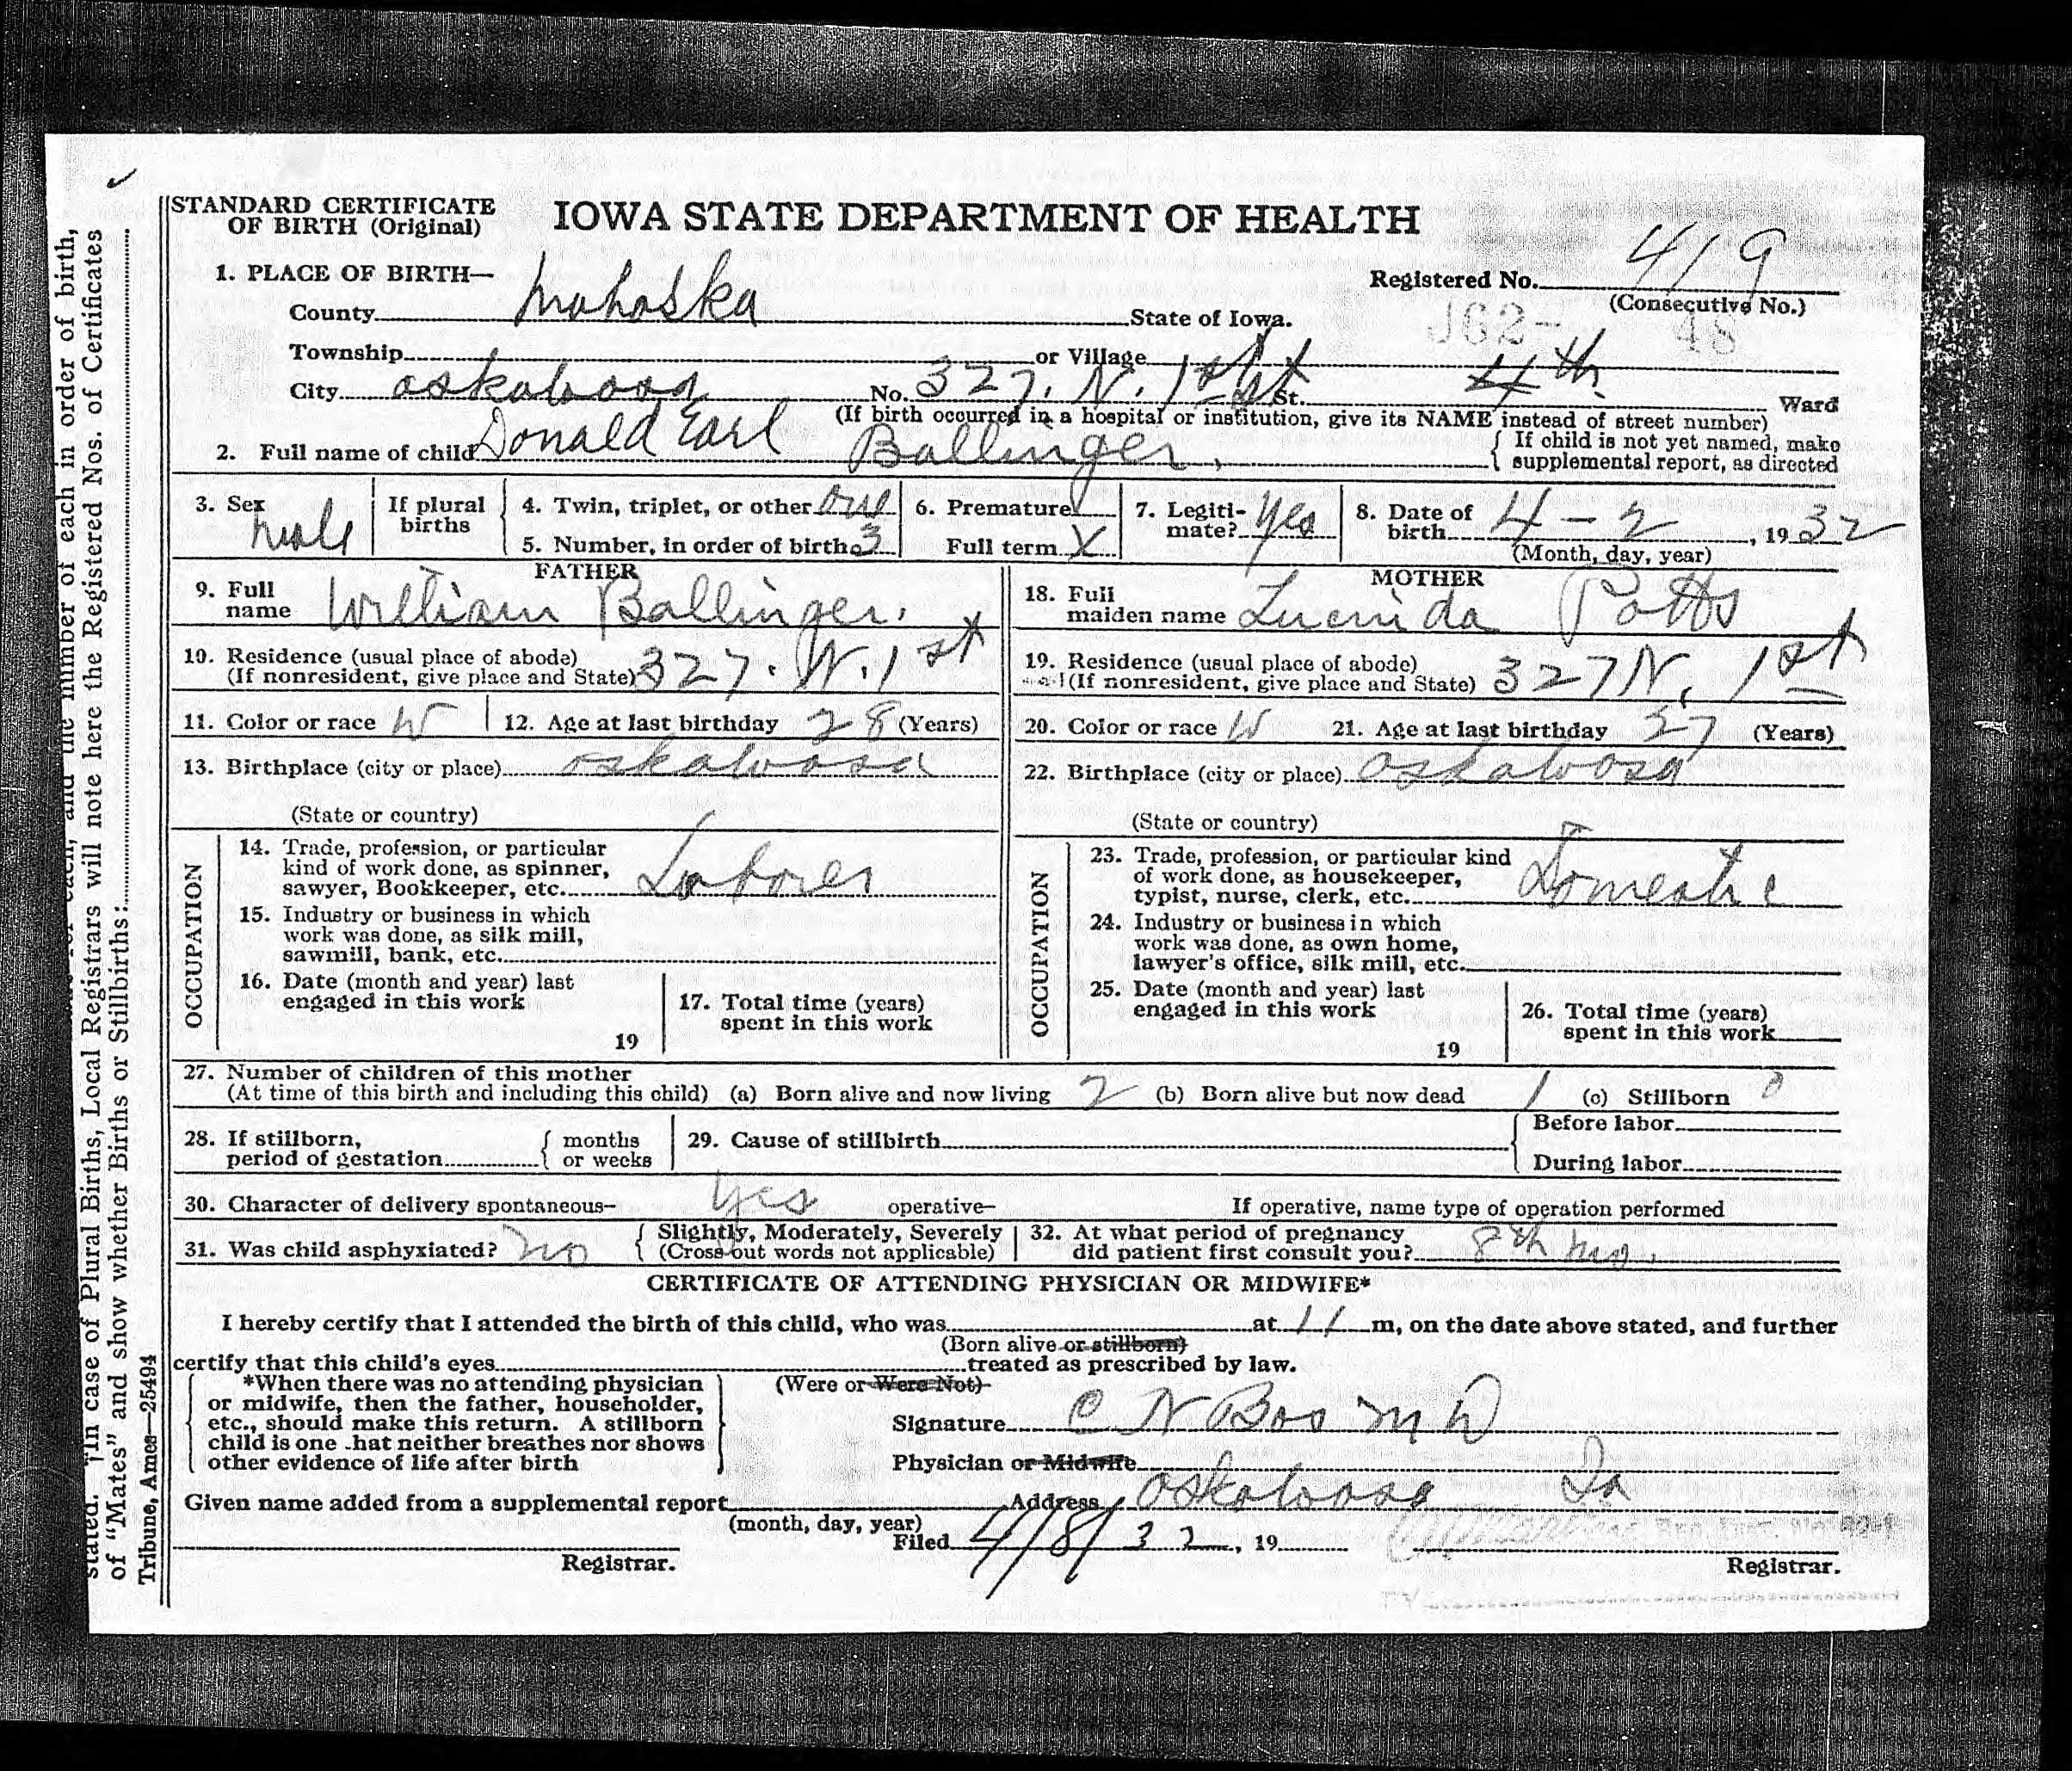 ✓
STANDARD CERTIFICATE
OF BIRTH (Original)
IOWA STATE DEPARTMENT OF HEALTH
1. PLACE OF BIRTH—
Registered No. 419
(Consecutive No.)
County Mahaska State of Iowa.
J62- 48
Township or Village
City Oskaloosa No. 327. N. 1st St. St. 4th. Ward
(If birth occurred in a hospital or institution, give its NAME instead of street number)
2. Full name of child Donald Earl Ballinger. { If child is not yet named, make
supplemental report, as directed
3. Sex Male
If plural births
4. Twin, triplet, or other one
5. Number, in order of birth 3
6. Premature
Full term X
7. Legiti-
mate? Yes
8. Date of
birth 4 - 2, 1932
(Month, day, year)
FATHER
9. Full
name William Ballinger.
10. Residence (usual place of abode)
(If nonresident, give place and State) 327. N. 1st
11. Color or race W
12. Age at last birthday 28 (Years)
13. Birthplace (city or place) Oskaloosa
(State or country)
OCCUPATION
14. Trade, profession, or particular
kind of work done, as spinner,
sawyer, Bookkeeper, etc. Laborer
15. Industry or business in which
work was done, as silk mill,
sawmill, bank, etc.
16. Date (month and year) last
engaged in this work
19
17. Total time (years)
spent in this work
MOTHER
18. Full
maiden name Lucinda Potts
19. Residence (usual place of abode)
(If nonresident, give place and State) 327 N. 1st
20. Color or race W
21. Age at last birthday 37 (Years)
22. Birthplace (city or place) Oskaloosa
(State or country)
OCCUPATION
23. Trade, profession, or particular kind
of work done, as housekeeper,
typist, nurse, clerk, etc. Domestic
24. Industry or business in which
work was done, as own home,
lawyer's office, silk mill, etc.
25. Date (month and year) last
engaged in this work
19
26. Total time (years)
spent in this work
27. Number of children of this mother
(At time of this birth and including this child) (a) Born alive and now living 2 (b) Born alive but now dead 1 (c) Stillborn 0
28. If stillborn,
period of gestation { months
or weeks
29. Cause of stillbirth
{ Before labor
During labor
30. Character of delivery spontaneous- Yes operative- If operative, name type of operation performed
31. Was child asphyxiated? No { Slightly, Moderately, Severely
(Cross out words not applicable)
32. At what period of pregnancy
did patient first consult you? 8th mo.
CERTIFICATE OF ATTENDING PHYSICIAN OR MIDWIFE*
I hereby certify that I attended the birth of this child, who was at 11 m, on the date above stated, and further
(Born alive or stillborn)
certify that this child's eyes treated as prescribed by law.
(Were or Were Not)
*When there was no attending physician
or midwife, then the father, householder,
etc., should make this return. A stillborn
child is one hat neither breathes nor shows
other evidence of life after birth
Signature C N Bos M D
Physician or Midwife
Given name added from a supplemental report
(month, day, year)
Address Oskaloosa Ia
Filed 4/8/32, 19
Registrar.
Registrar.
stated. In case of Plural Births, Local Registrars will note here the Registered Nos. of Certificates
of "Mates" and show whether Births or Stillbirths:
and the number of each in order of birth,
Tribune, Ames—25494